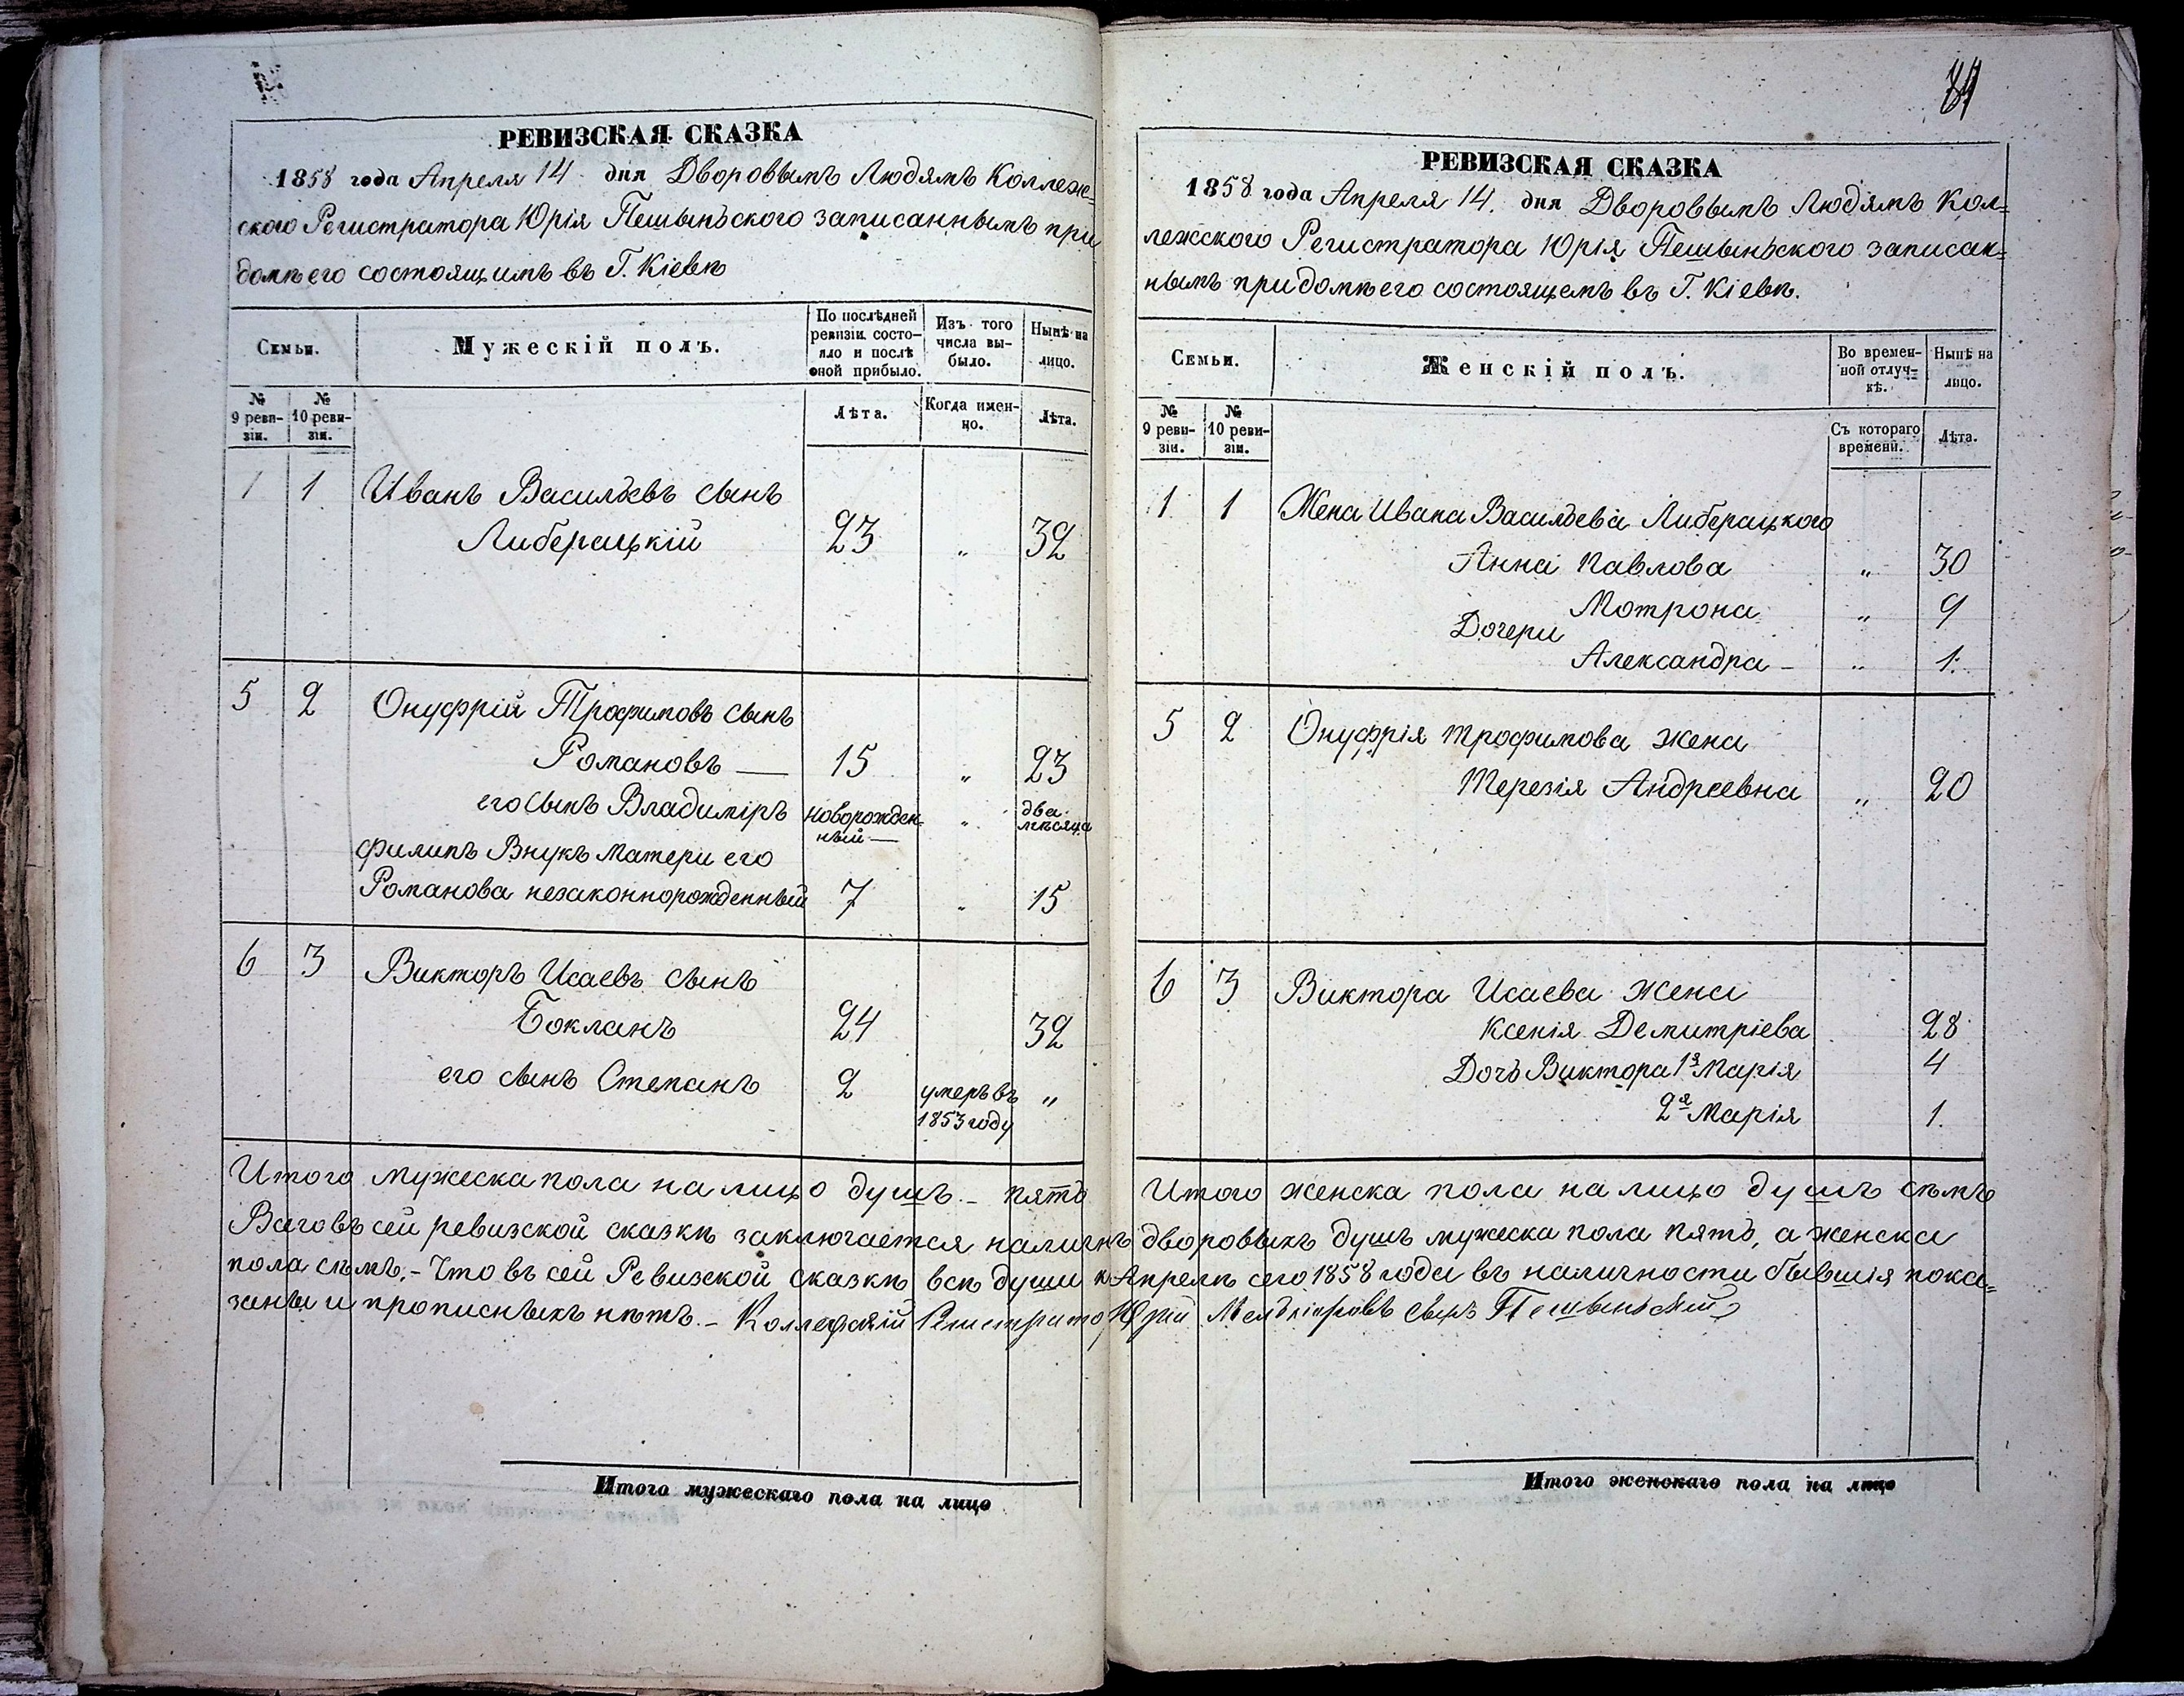 РЕВИЗСКАЯ СКАЗКА
1858 года Апреля 14 дня Дворовымъ Людямъ Коллеж=
ского Регистратора Юрія Пешыньского записаннымъ при
домѣ его состоящимъ въ Г. Кіевѣ
Семьи.
Мужескій полъ.
По послѣдней ревизіи состо-
яло и послѣ оной прибыло.
Изъ того числа вы-
было.
Нынѣ на лицо.
№ 9 реви-
зіи.
№ 10 реви-
зіи.
Лѣта.
Когда имен-
но.
Лѣта.
1 1 Иванъ Васильевъ сынъ
Либерацкій 23 " 32
5 2 Онуфрій Трофимовъ сынъ
Романовъ — 15 " 23
его сынъ Владиміръ новорожден-
ный — " два мѣсяца
Филипъ Внукъ Матери его
Романова незаконнорожденный 7 " 15
6 3 Викторъ Исаевъ сынъ
Бокланъ 24 32
его сынъ Степанъ 2 умеръ въ 1853 году "
Итого мужеска пола на лицо душъ — пять
Итого мужескаго пола на лицо
РЕВИЗСКАЯ СКАЗКА
1858 года Апреля 14. дня Дворовымъ Людямъ Кол=
лежского Регистратора Юрія Пешыньского записан=
нымъ при домѣ его состоящемъ въ Г. Кіевѣ.
Семьи.
Женскій полъ.
Во времен-
ной отлуч-
кѣ.
Нынѣ на лицо.
№ 9 реви-
зіи.
№ 10 реви-
зіи.
Съ котораго времени.
Лѣта.
1 1 Жена Ивана Васильева Либерацкого
Анна Павлова " 30
Дочери Мотрона " 9
Александра — " 1.
5 2 Онуфрія Трофимова жена
Терезія Андреевна " 20
6 3 Виктора Исаева жена
Ксенія Демитріева 28
Дочь Виктора 1я Марія 4
2я Марія 1.
Итого женска пола на лицо душъ сѣмь
Всего въ сей ревизской сказкѣ заключается наличн дворовыхъ душъ мужеска пола пять, а женска
пола сѣмь, — Что въ сей Ревизской сказкѣ всѣ души к Апрелѣ сего 1858 года въ наличности бывшія пока=
заны и прописныхъ нѣтъ. — Коллежскій Регистраторъ Юрій сынъ Пешыньскій
Итого женскаго пола на лицо